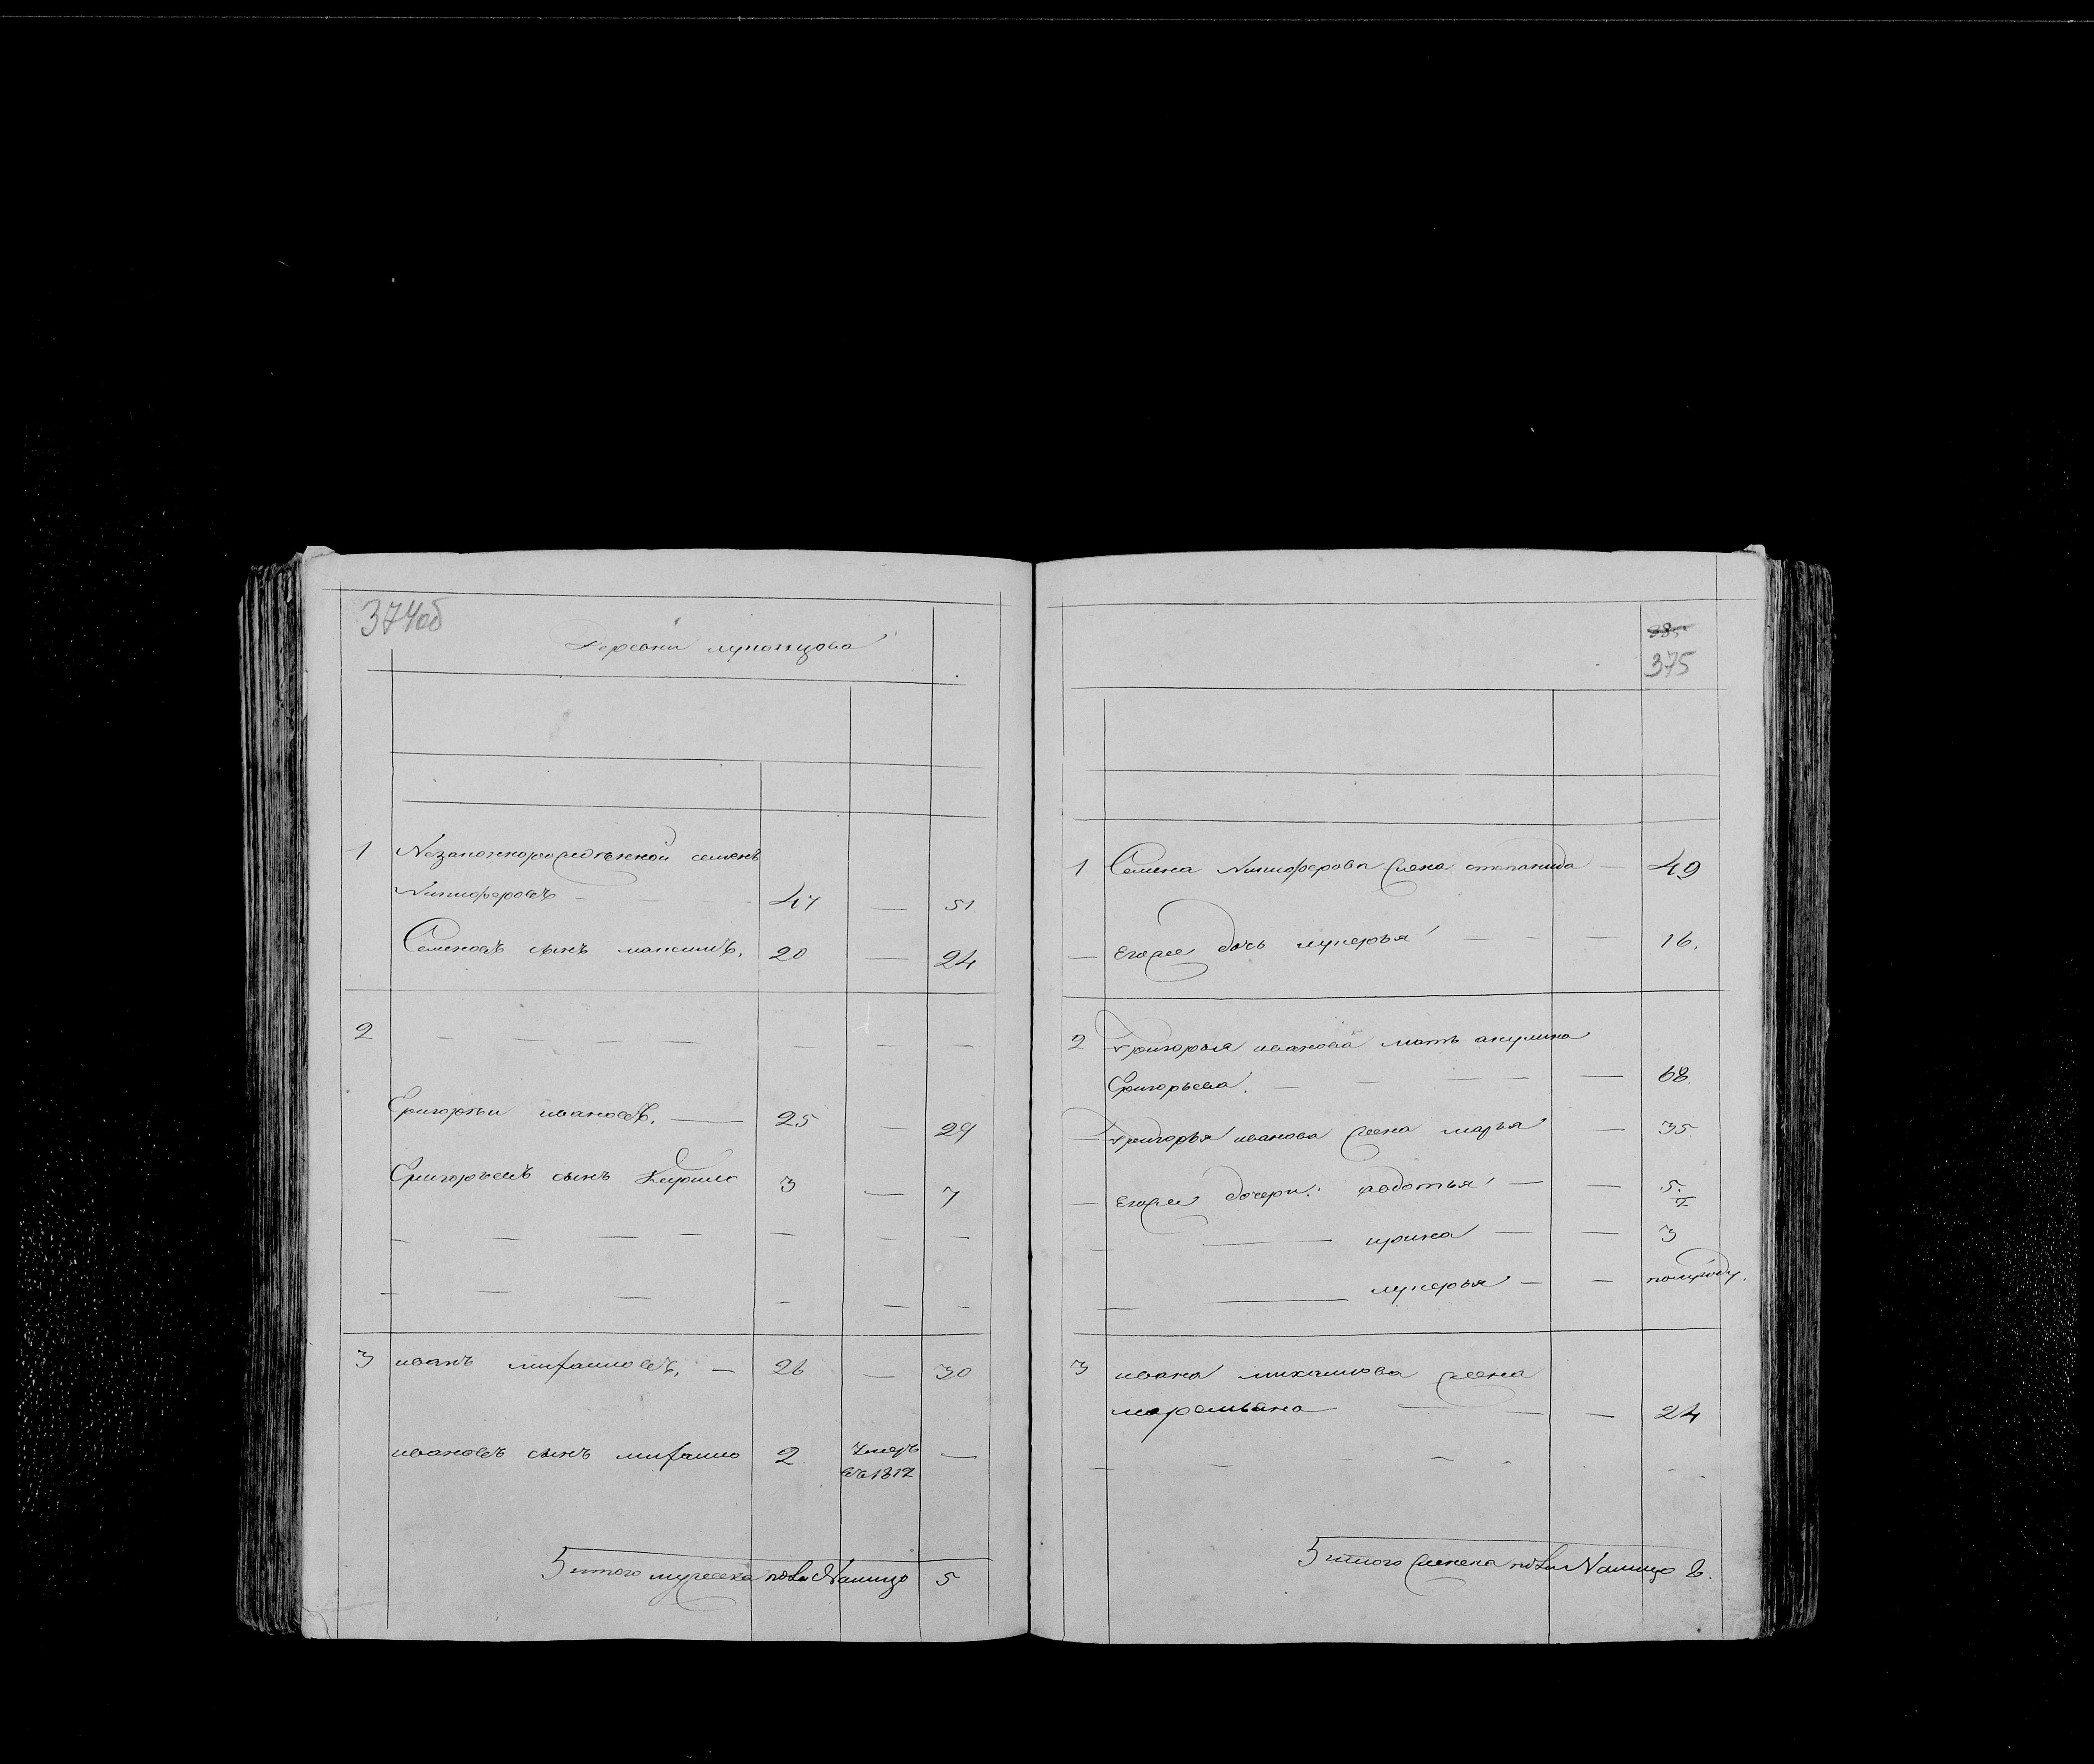 374об
Деревни
1
семенъ
Никифоровъ
47 — 51
Семеновъ сынъ максимъ. 20 — 24
2 — — — — — — — —
Григорьи ивановъ. — 25 — 29
Григорьевъ сынъ Кирило 3 — 7
— — — — — — —
— — — — — —
3 иванъ михаиловъ. — 26 — 30
ивановъ сынъ михаило 2 Умеръ въ 1812 —
итого мужеска полу Налицо 5
385
375
1 Семена Никифорова жена степанида — 49
— Егоже дочь лукерья — — — 16.
2 Григорья иванова мать акулина
Григорьева. — — — — — 68
— Григорья иванова жена марья — 35
— Егоже дочери: — — 5
— — — ирина — — 3
— — лукерья — — полугоду.
3 ивана михаилова жена
маремьяна — — — 24
— — — — - - -
итого женска полу Налицо 8.